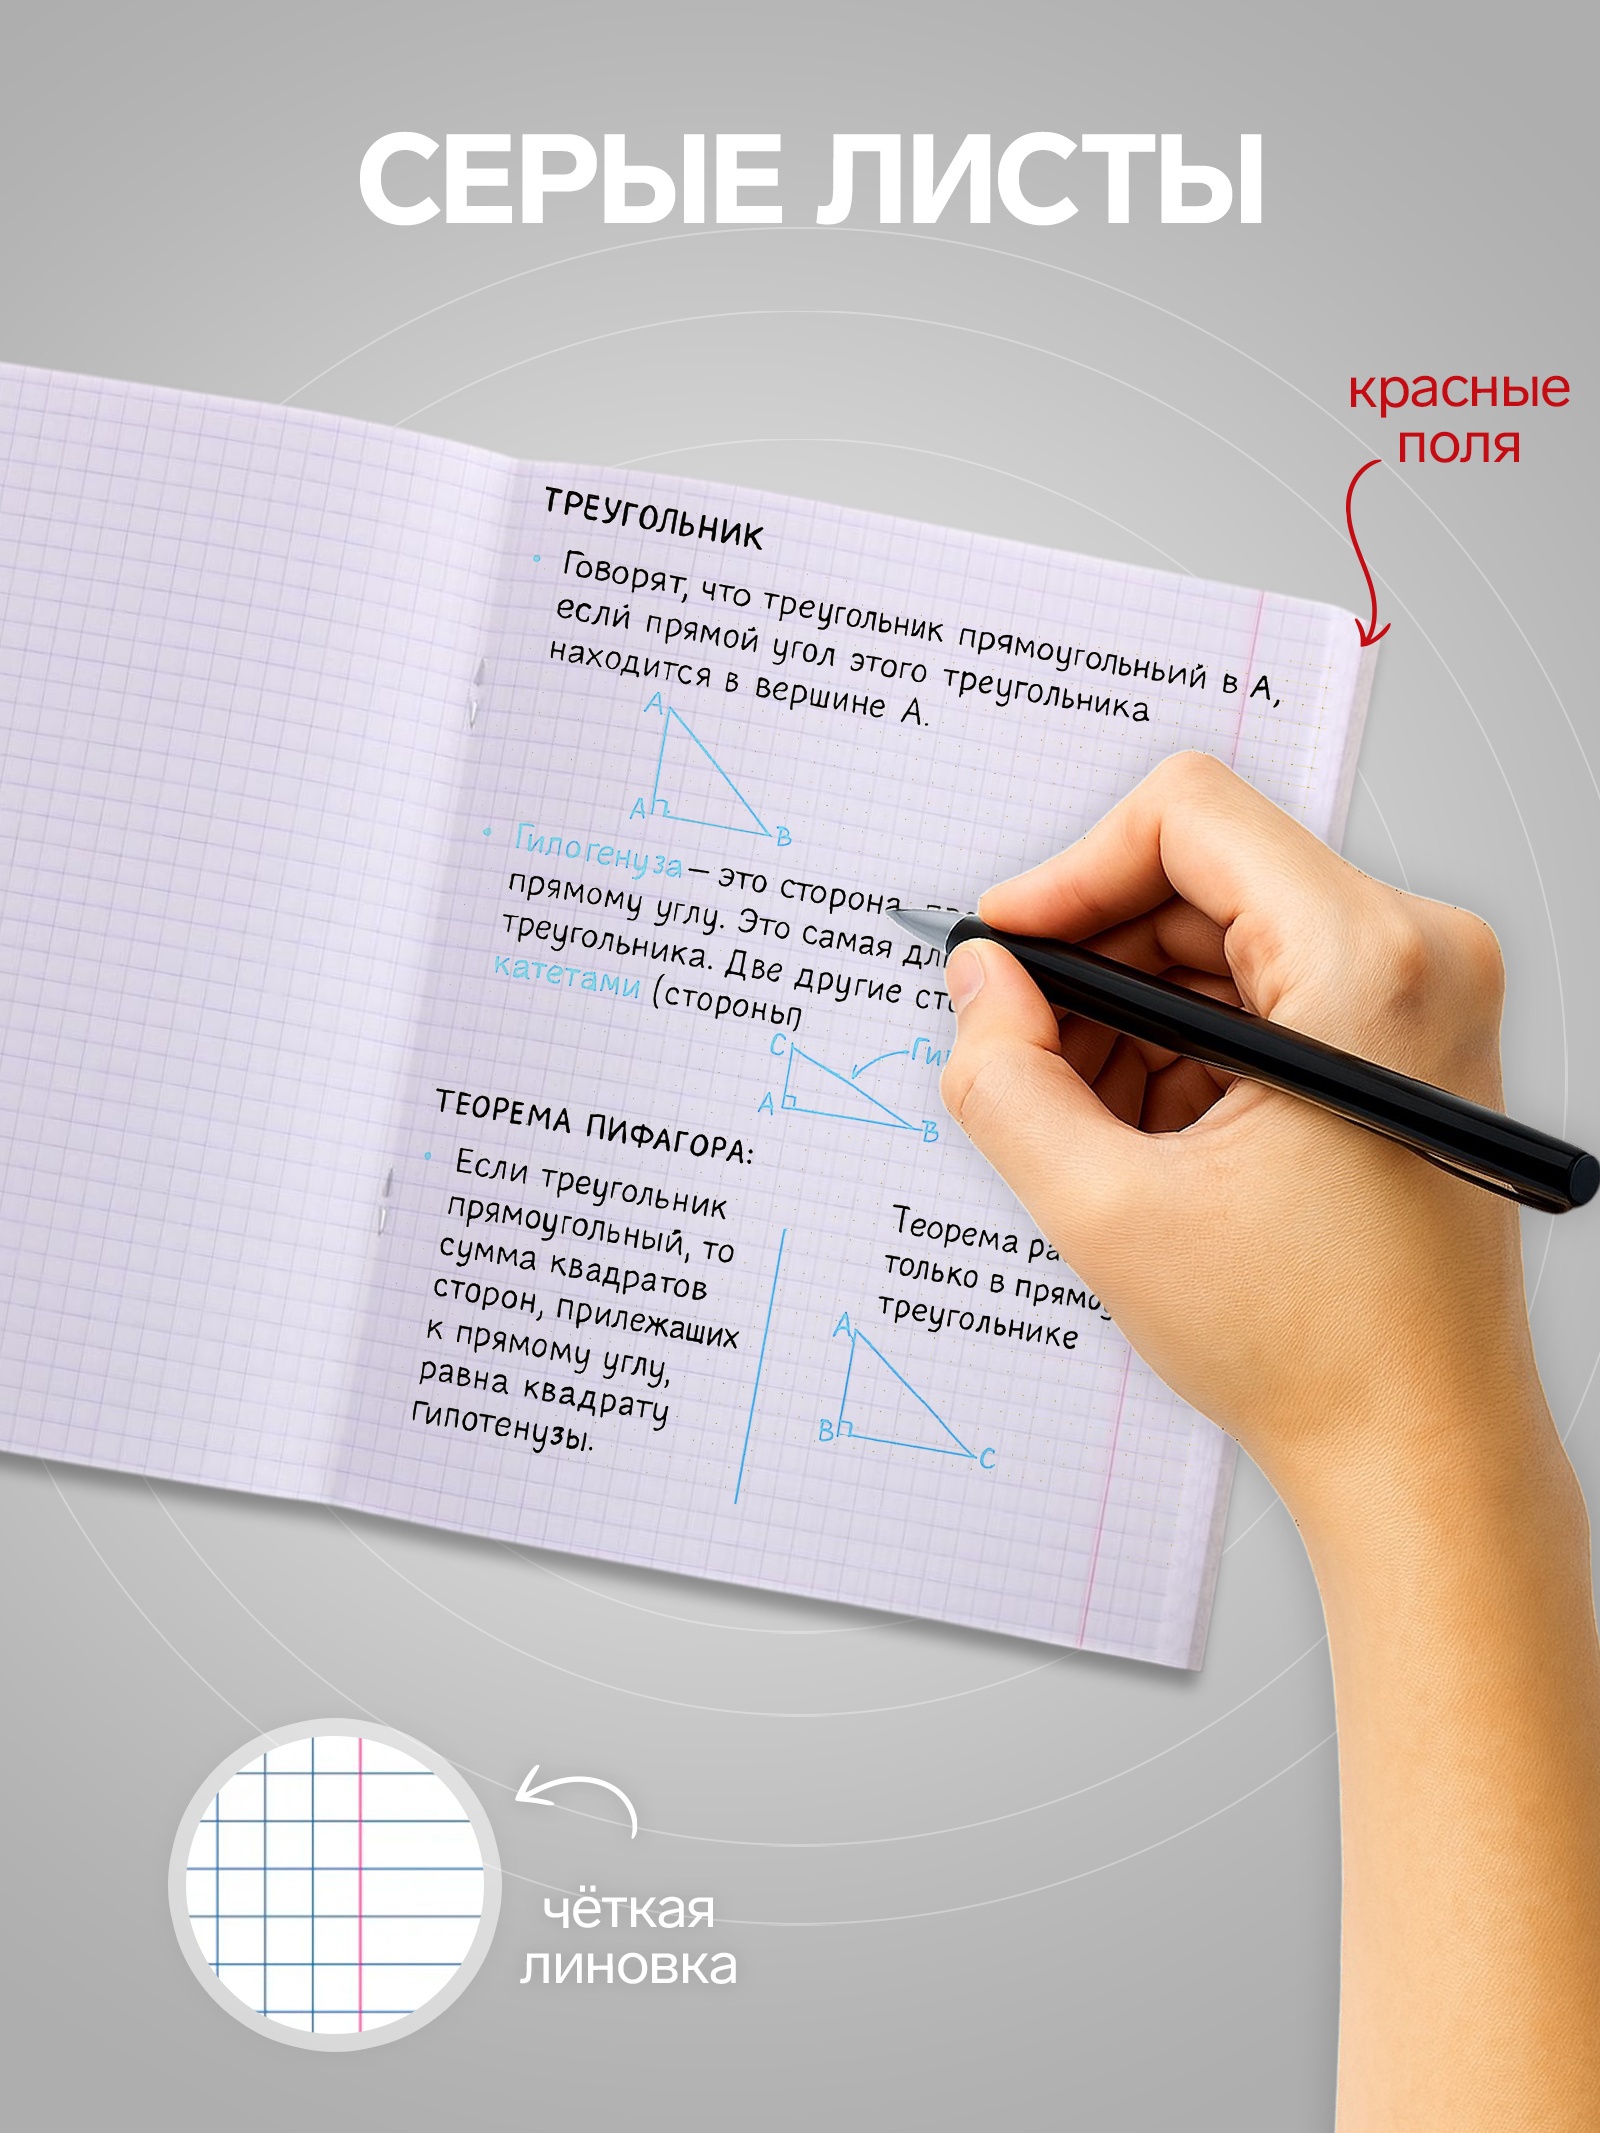 СЕРЫЕ ЛИСТЫ
красные
поля
ТРЕУГОЛЬНИК
• Говорят, что треугольник прямоугольньий в А,
если прямой угол этого треугольника
находится в вершине А.
А
А
В
• Гилогенуза — это сторона,
прямому углу. Это самая
треугольника. Две другие
катетами (стороньп
С
А
В
ТЕОРЕМА ПИФАГОРА:
• Если треугольник
прямоугольный, то
сумма квадратов
сторон, прилежаших
к прямому углу,
равна квадрату
гипотенузы.
Теорема
только в
треугольнике
А
В
С
чёткая
линовка